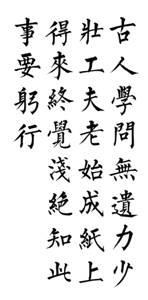 古人學問無遺力少
壯工夫老始成紙上
得來終覺淺絕知此
事要躬行